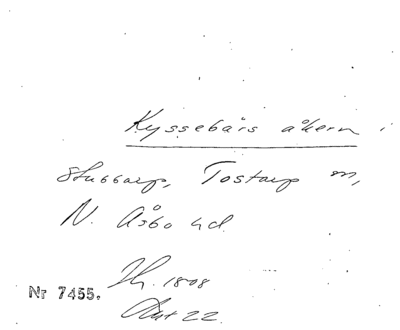 Kyssebärs åkern i
Stubbarp, Tostarp m,
N. Åsbo hd.
1808
Akt 22
Nr 7455.